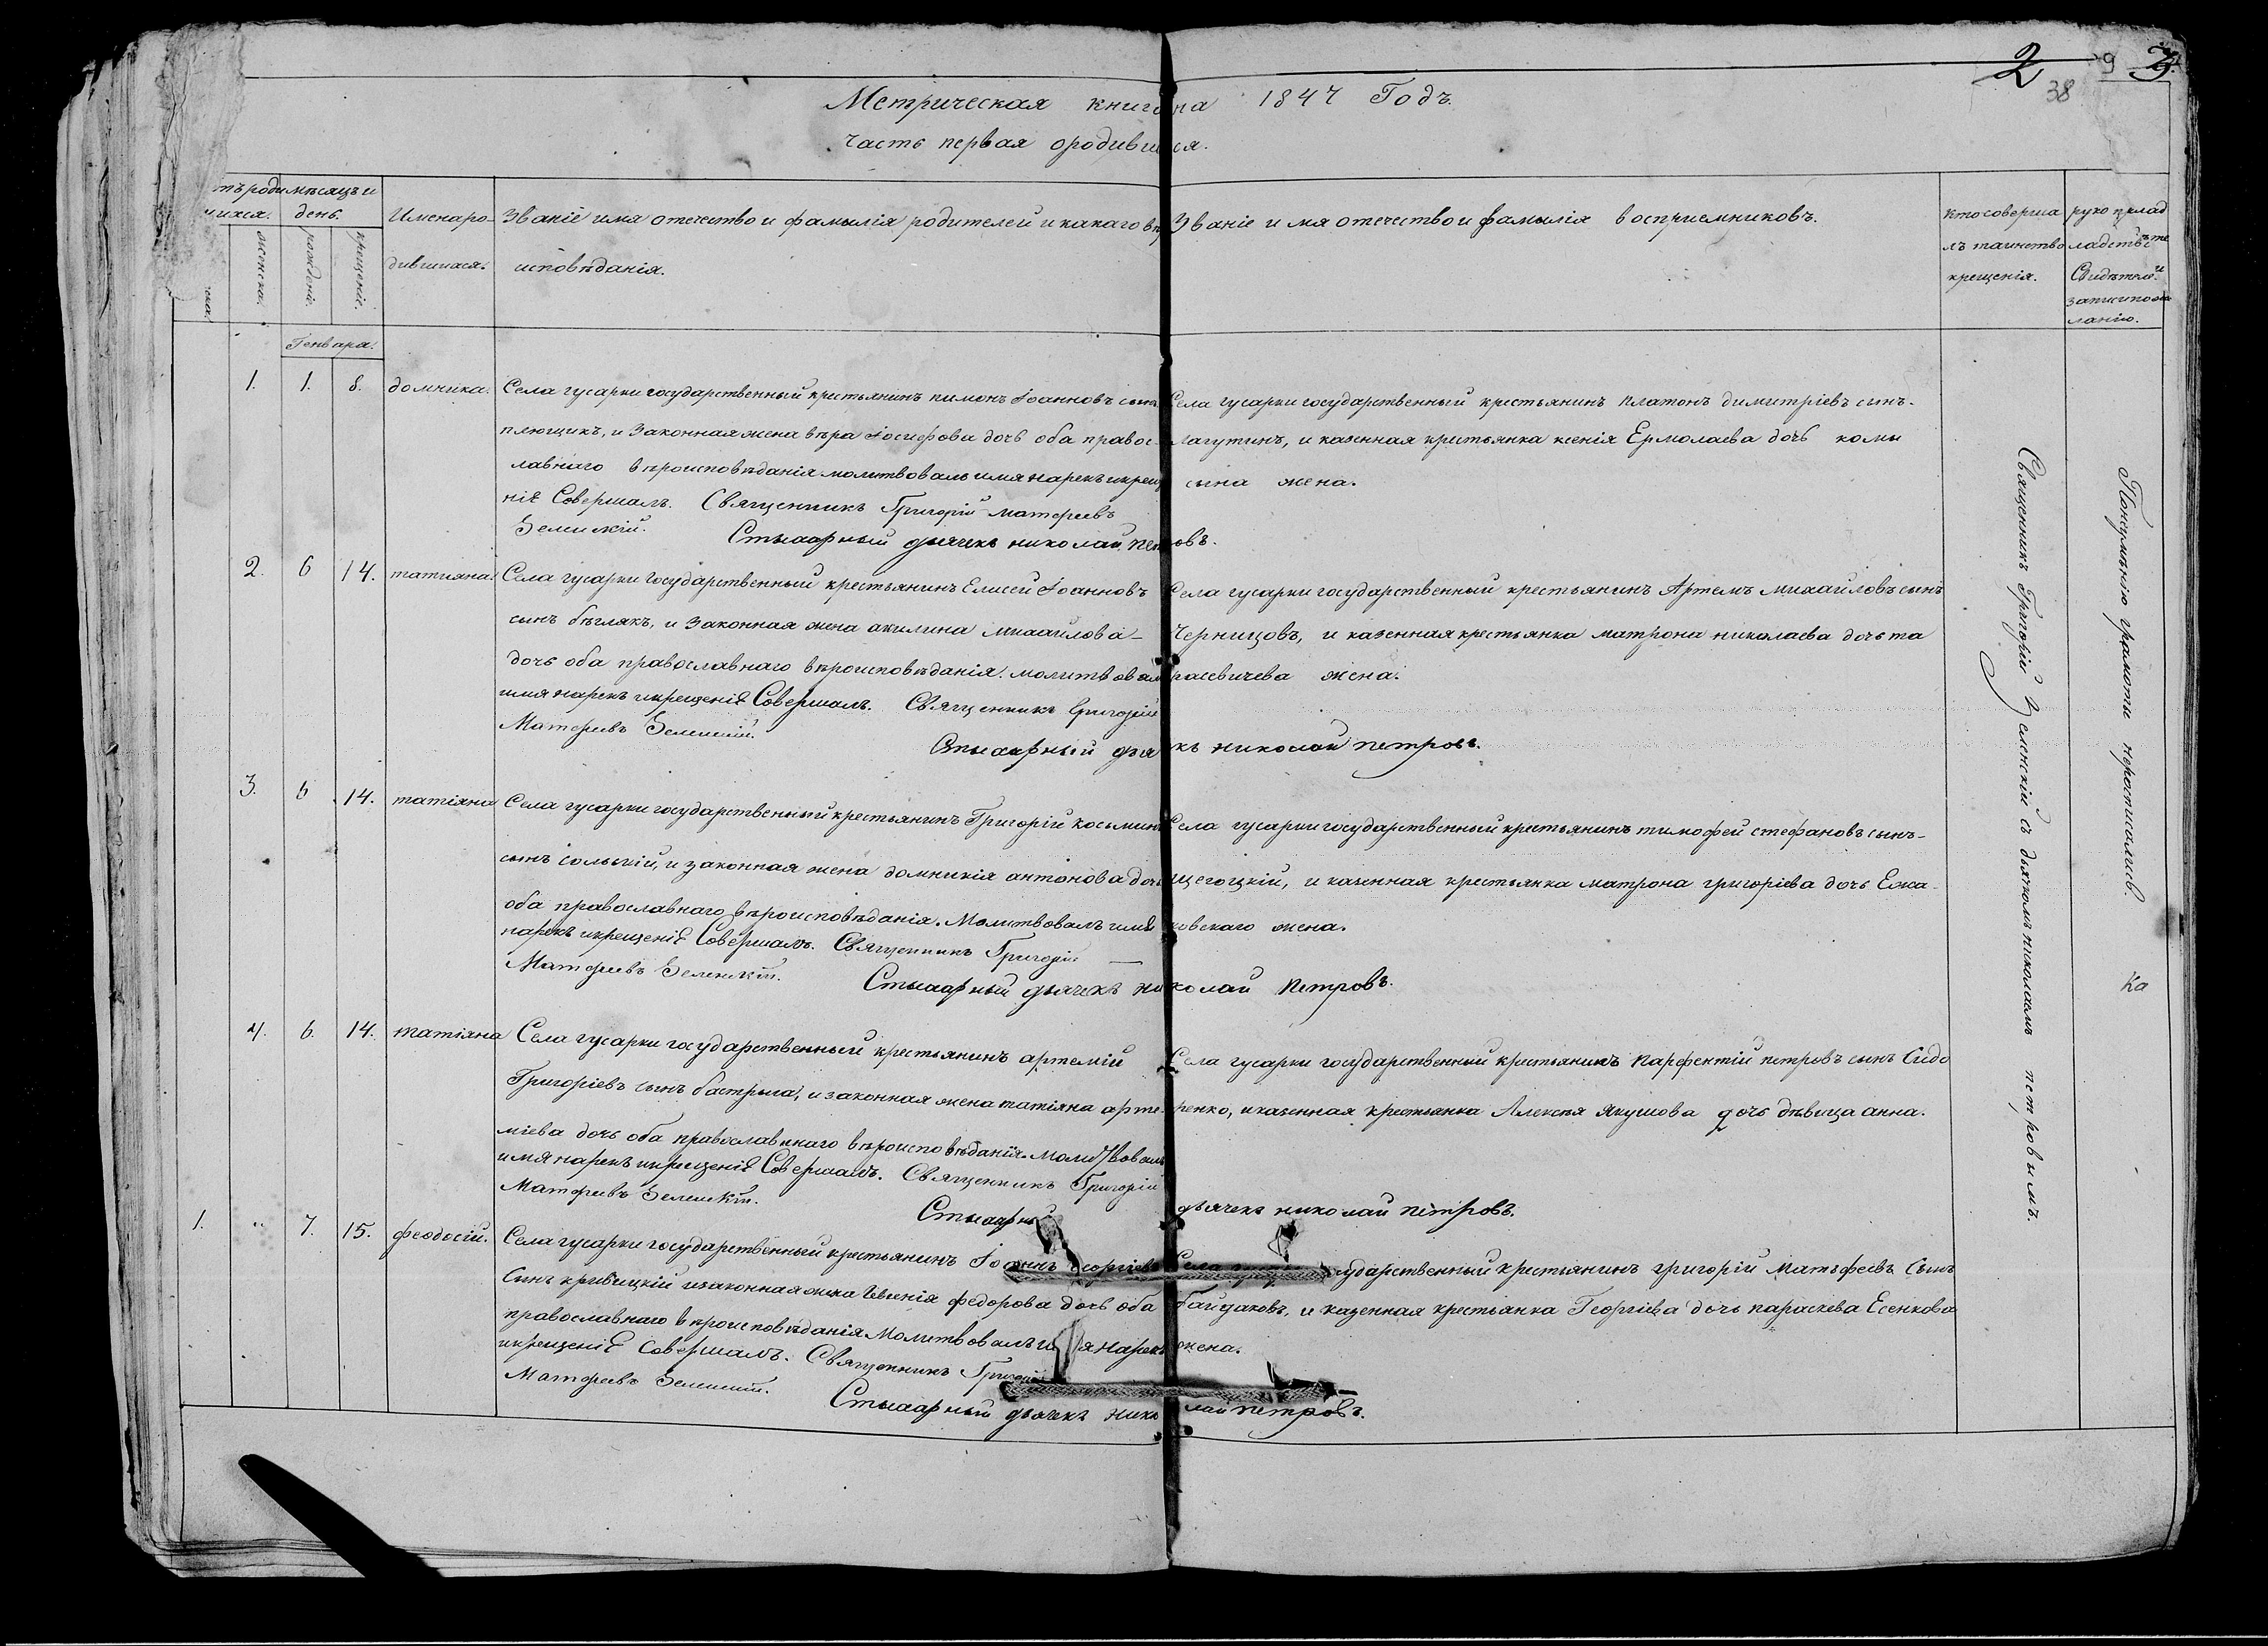 2 9
38
Метрическая книга на 1847 Годъ.
Часть первая ородившися.
мѣсяцъ и
день.
женска.
рожденіе.
крещеніе.
Имена ро-
дившихся.
Званіе имя отечество и фамылія родителей и какаго в
исповѣданія.
Званіе и мя отечество и фамылія восприемниковъ.
кто соверша
лъ таинство
крещенія.
руко приклад
Свидѣтел
записи по же
ланію.
Генвара.
1. 1. 8. домника.
Села гусарки государственный крестьянинъ пимонъ Іоанновъ сынъ
плющикъ, и Законная жена вѣра Іосифова дочь оба правос-
лавнаго вѣроисповѣданія молитвовалъ имя нарекъ и крещ
ніе Совершалъ. Священникъ Григорій Матфеевъ
Зеленскій.
Стихарный дьячекъ николай петровъ.
Села гусарки государственный крестьянинъ платонъ димитріевъ сынъ.
лагутинъ, и казенная крестьянка ксенія Ермолаева дочь комы
сина жена.
2. 6 14. татияна.
Села гусарки государственный крестьянинъ Елисей Іоанновъ
сынъ бѣглякъ, и Законная жена акилина михаилова-
дочь оба православнаго вѣроисповѣданія. молитвовалъ
имя нарекъ и крещеніе Совершалъ. Священникъ Григорій
Матфеевъ Зеленскій.
Стихарный дья къ николай петровъ.
Села гусарки государственный крестьянинъ Артемъ михайловъ сынъ
Черницовъ, и казенная крестьянка матрона николаева дочь та
расевичева жена.
3. 6 14. татіяна
Села гусарки государственный крестьянинъ Григорій косьминъ
сынъ сольскій, и законная жена домникія антонова дочь
оба православнаго вѣроисповѣданія. Молитвовалъ имя
нарекъ и крещеніе Совершалъ. Священникъ Григорій
Матфеевъ Зеленскій.
Стихарный дьячекъ николай петровъ.
Села гусарки государственный крестьянинъ тимофей стефановъ сынъ-
щегоцкій, и казенная крестьянка матрона григоріева дочь Ежа-
ковскаго жена.
4. 6. 14. татіяна
Села гусарки государственный крестьянинъ артемій
Григоріевъ сынъ бастрыга, и законная жена татіяна арте-
міева дочь оба православннаго вѣроисповѣданія. Молитвовалъ
имя нарекъ и крещеніе Совершалъ. Священникъ Григорій
Матфеевъ Зеленскій.
Стихарный дьячекъ николай петровъ.
Села гусарки государственный крестьянинъ парфентій петровъ сынъ Сидо
ренко, и казенная крестьянка Алексѣя якушова дочь дѣвица анна.
1. „ 7. 15. феодосій.
Села гусарки государственный крестьянинъ Іоаннъ Георгіевъ
Сынъ кривицкій и законная жена Евгенія федорова дочь оба
православнаго вѣроисповѣданія Молитвовалъ имя нарекъ
и крещеніе Совершалъ. Священникъ Григорій
Матфеевъ Зеленскій.
Стихарный дьячекъ нико лай петровъ.
Села ударственный крестьянинъ григорій матѳеевъ Сынъ
байдаковъ, и казенная крестьянка Георгіева дочь параскева Есенкова
жена.
Священникъ Григорій Зеленскій съ дьячкомъ николаемъ петровымъ.
Понеумѣнію грамоты нерасписались.
Ка